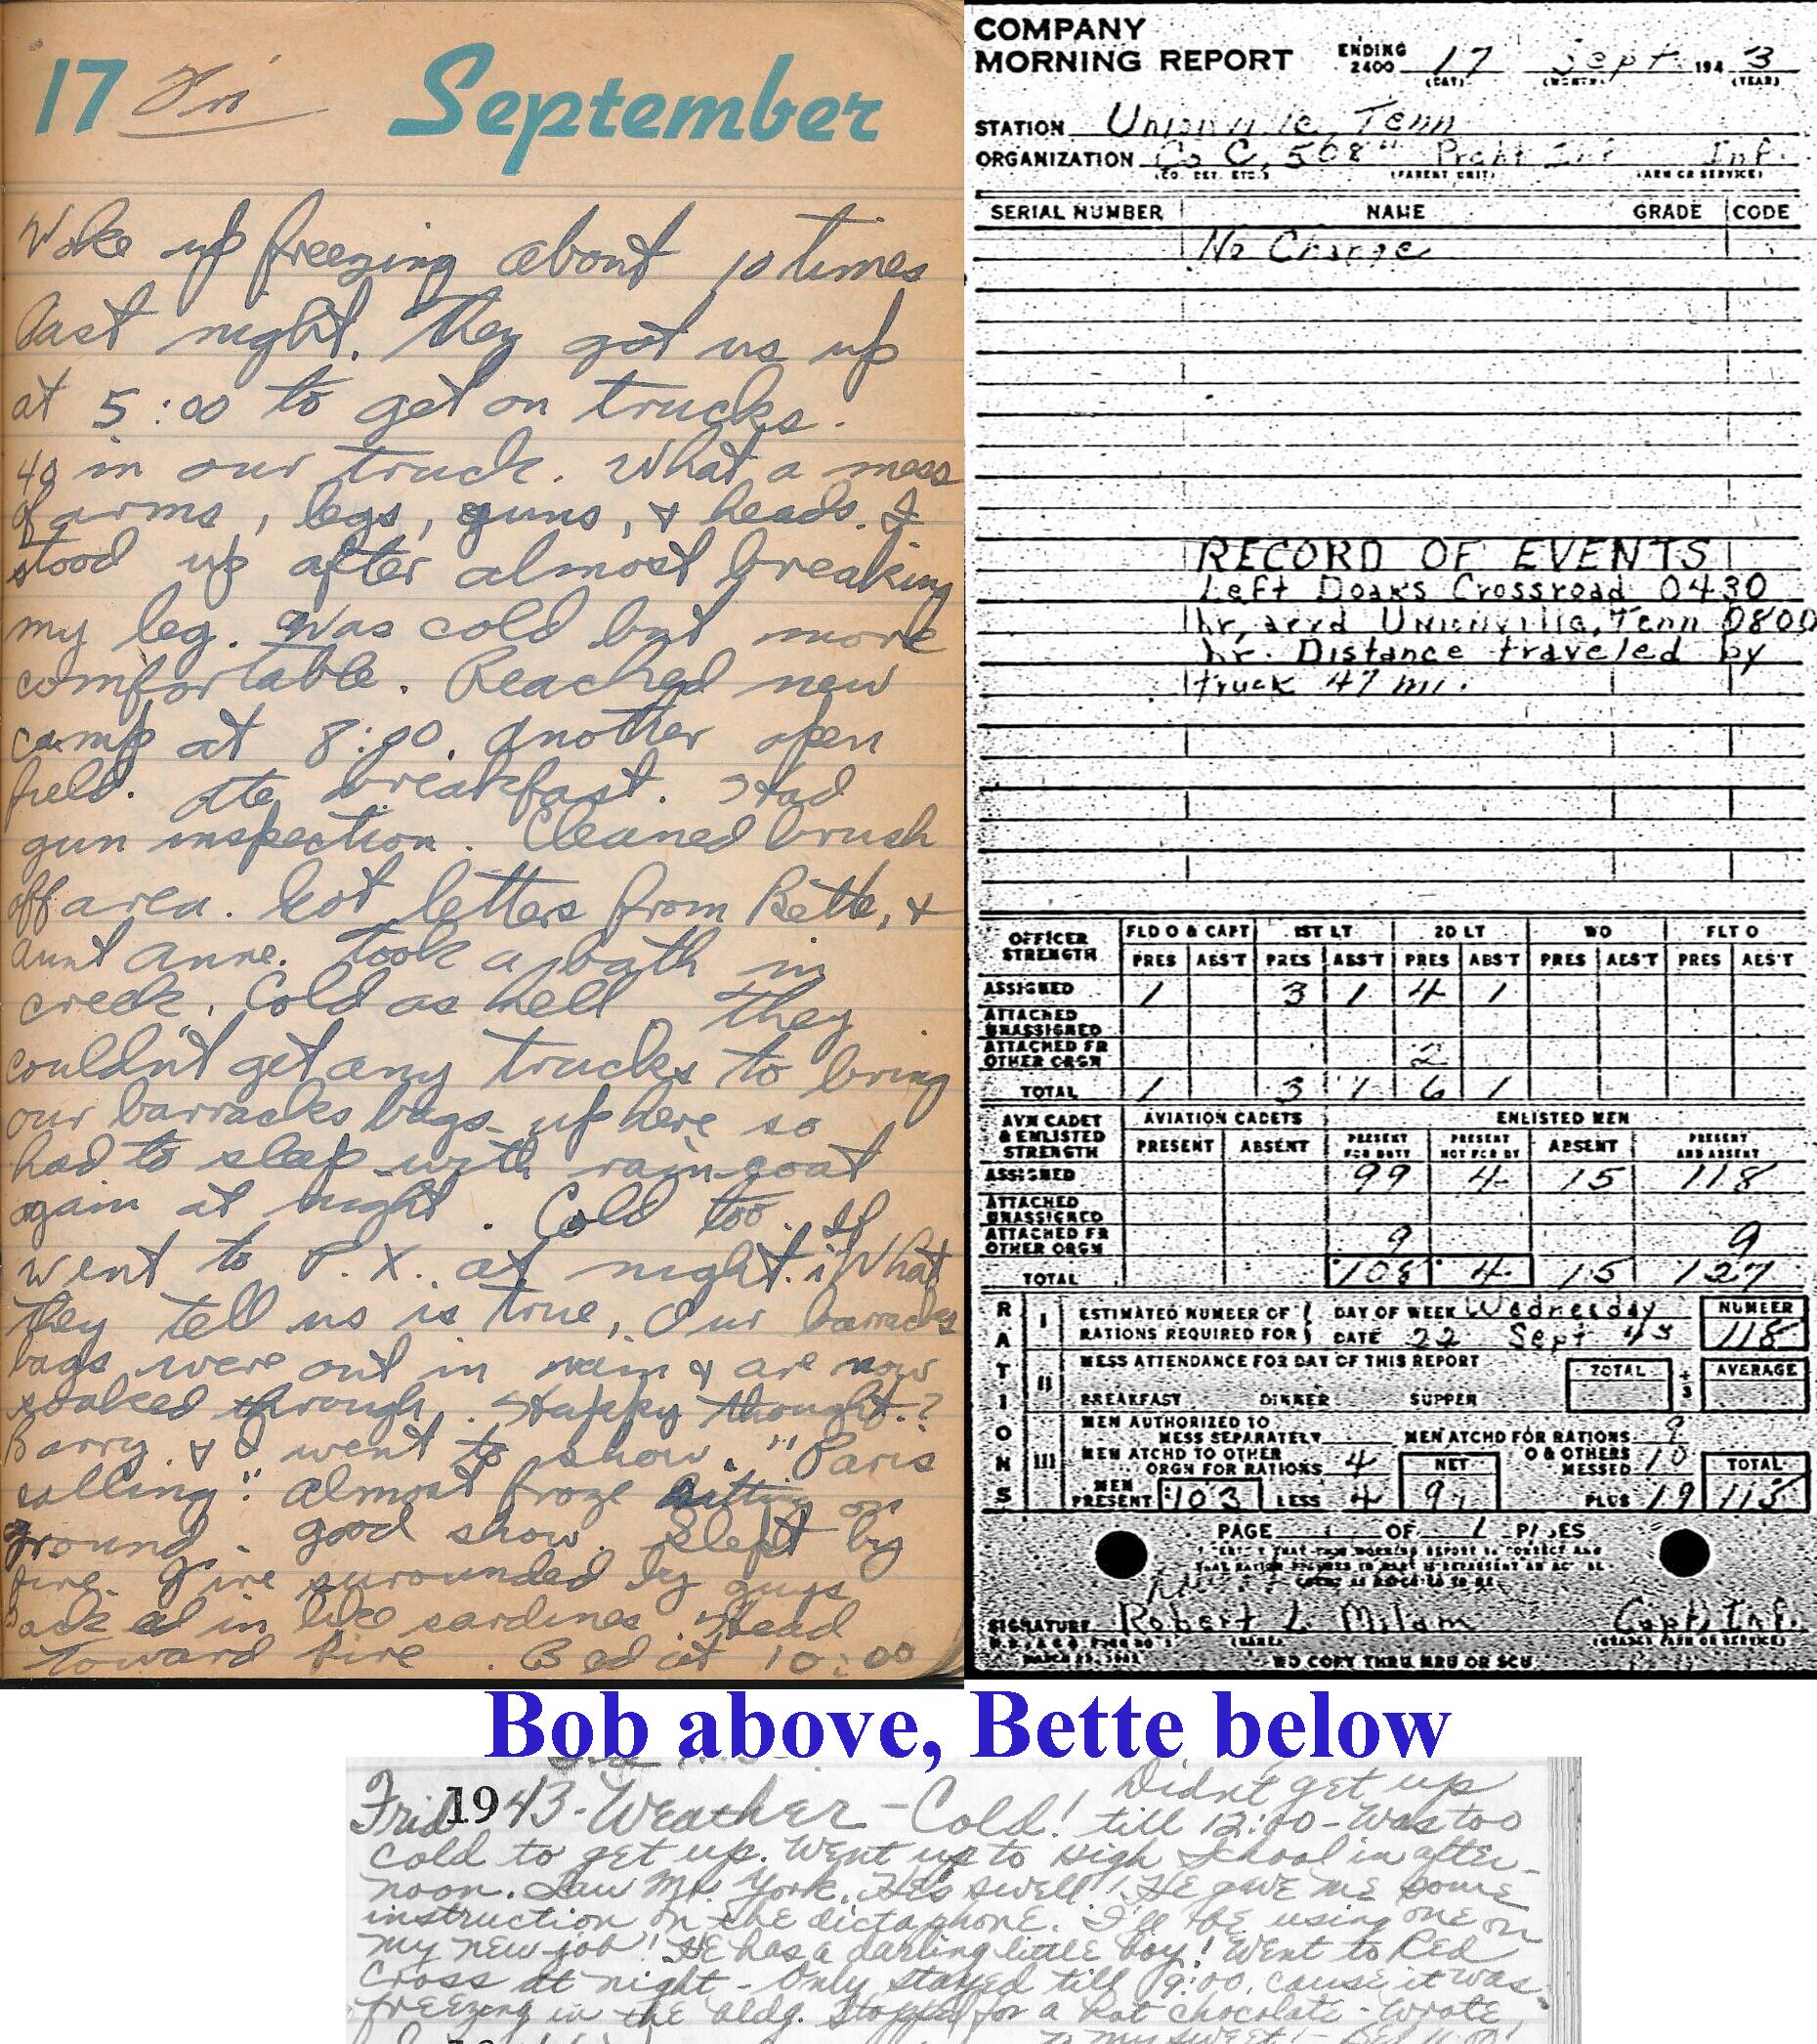 17 Fri September
Woke up freezing about 10 times
last night. They got us up
at 5:00 to get on trucks.
40 in our truck. What a mess
of arms, legs, guns, & heads. I
stood up after almost breaking
my leg. Was cold but more
comfortable. Reached new
camp at 8:00. Another open
field. Ate breakfast. Had
gun inspection. Cleaned brush
off area. Got letters from Bette, &
Aunt Anne. Took a bath in
creek. Cold as hell. They
couldn't get any trucks to bring
our barracks bags up here so
had to sleep with rain-coat
again at night. Cold too. If
went to P.X. at night. What
they tell us is true, Our barracks
bags were out in rain & are now
soaked through. Happy thought.?
Barry & I went to show. "Paris
calling". Almost froze sitting on
ground. good show. Slept by
fire. Fire surounded by guys
Packed in like sardines. Head
toward fire. Bed at 10:00
COMPANY
MORNING REPORT ENDING 2400 17 Sept. 1943
(DAY) (MONTH) (YEAR)
STATION Unionville, Tenn
ORGANIZATION Co C, 508" Prcht Inf Inf.
(CO. DET. ETC.) (PARENT UNIT) (ARM OR SERVICE)
SERIAL NUMBER NAME GRADE CODE
No Change
RECORD OF EVENTS
Left Doaks Crossroad 0430
hr, arrd Unionville, Tenn 0800
hr. Distance traveled by
truck 47 mi.
OFFICER STRENGTH FLD O & CAPT 1ST LT 2D LT WO FLT O
PRES ABS'T PRES ABS'T PRES ABS'T PRES ABS'T PRES ABS'T
ASSIGNED 1 3 1 4 1
ATTACHED UNASSIGNED
ATTACHED FR OTHER ORGN 2
TOTAL 1 3 1 6 1
AVN CADET & ENLISTED STRENGTH AVIATION CADETS ENLISTED MEN
PRESENT ABSENT PRESENT FOR DUTY PRESENT NOT FOR DY ABSENT PRESENT AND ABSENT
ASSIGNED 99 4 15 118
ATTACHED UNASSIGNED
ATTACHED FR OTHER ORGN 9 9
TOTAL 108 4 15 127
RATIONS
I ESTIMATED NUMBER OF DAY OF WEEK Wednesday NUMBER
RATIONS REQUIRED FOR DATE 22 Sept 43 118
II MESS ATTENDANCE FOR DAY OF THIS REPORT TOTAL ÷ 3 AVERAGE
BREAKFAST DINNER SUPPER
III MEN AUTHORIZED TO MESS SEPARATELY MEN ATCHD FOR RATIONS 9
MEN ATCHD TO OTHER ORGN FOR RATIONS 4 NET O & OTHERS MESSED 10 TOTAL
MEN PRESENT 103 LESS 4 PLUS 19
PAGE 1 OF 1 PAGES
SIGNATURE Robert L. Milam Capt, Inf.
(NAME) (GRADE ARM OR SERVICE)
WD COPY THRU MRU OR SCU
Bob above, Bette below
Frid 1943 - Weather - Cold! Didn't get up
till 12:00 - Was too
cold to get up. Went up to High School in after-
noon. Saw Mr. York. He's swell! He gave me some
instruction on the dictaphone. I'll be using one on
my new job! He has a darling little boy! Went to Red
Cross at night - Only stayed till 9:00, cause it was
freezing in the bldg. Stopped for a hot chocolate - Wrote
to my sweet! - Bed 11:00!